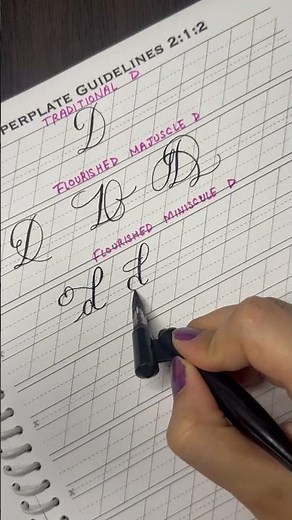 PERPLATE GUIDELINES 2:1:2
TRADITIONAL D
D
FLOURISHED MAJUSCLE D
D D D
FLOURISHED MINISCULE D
d d